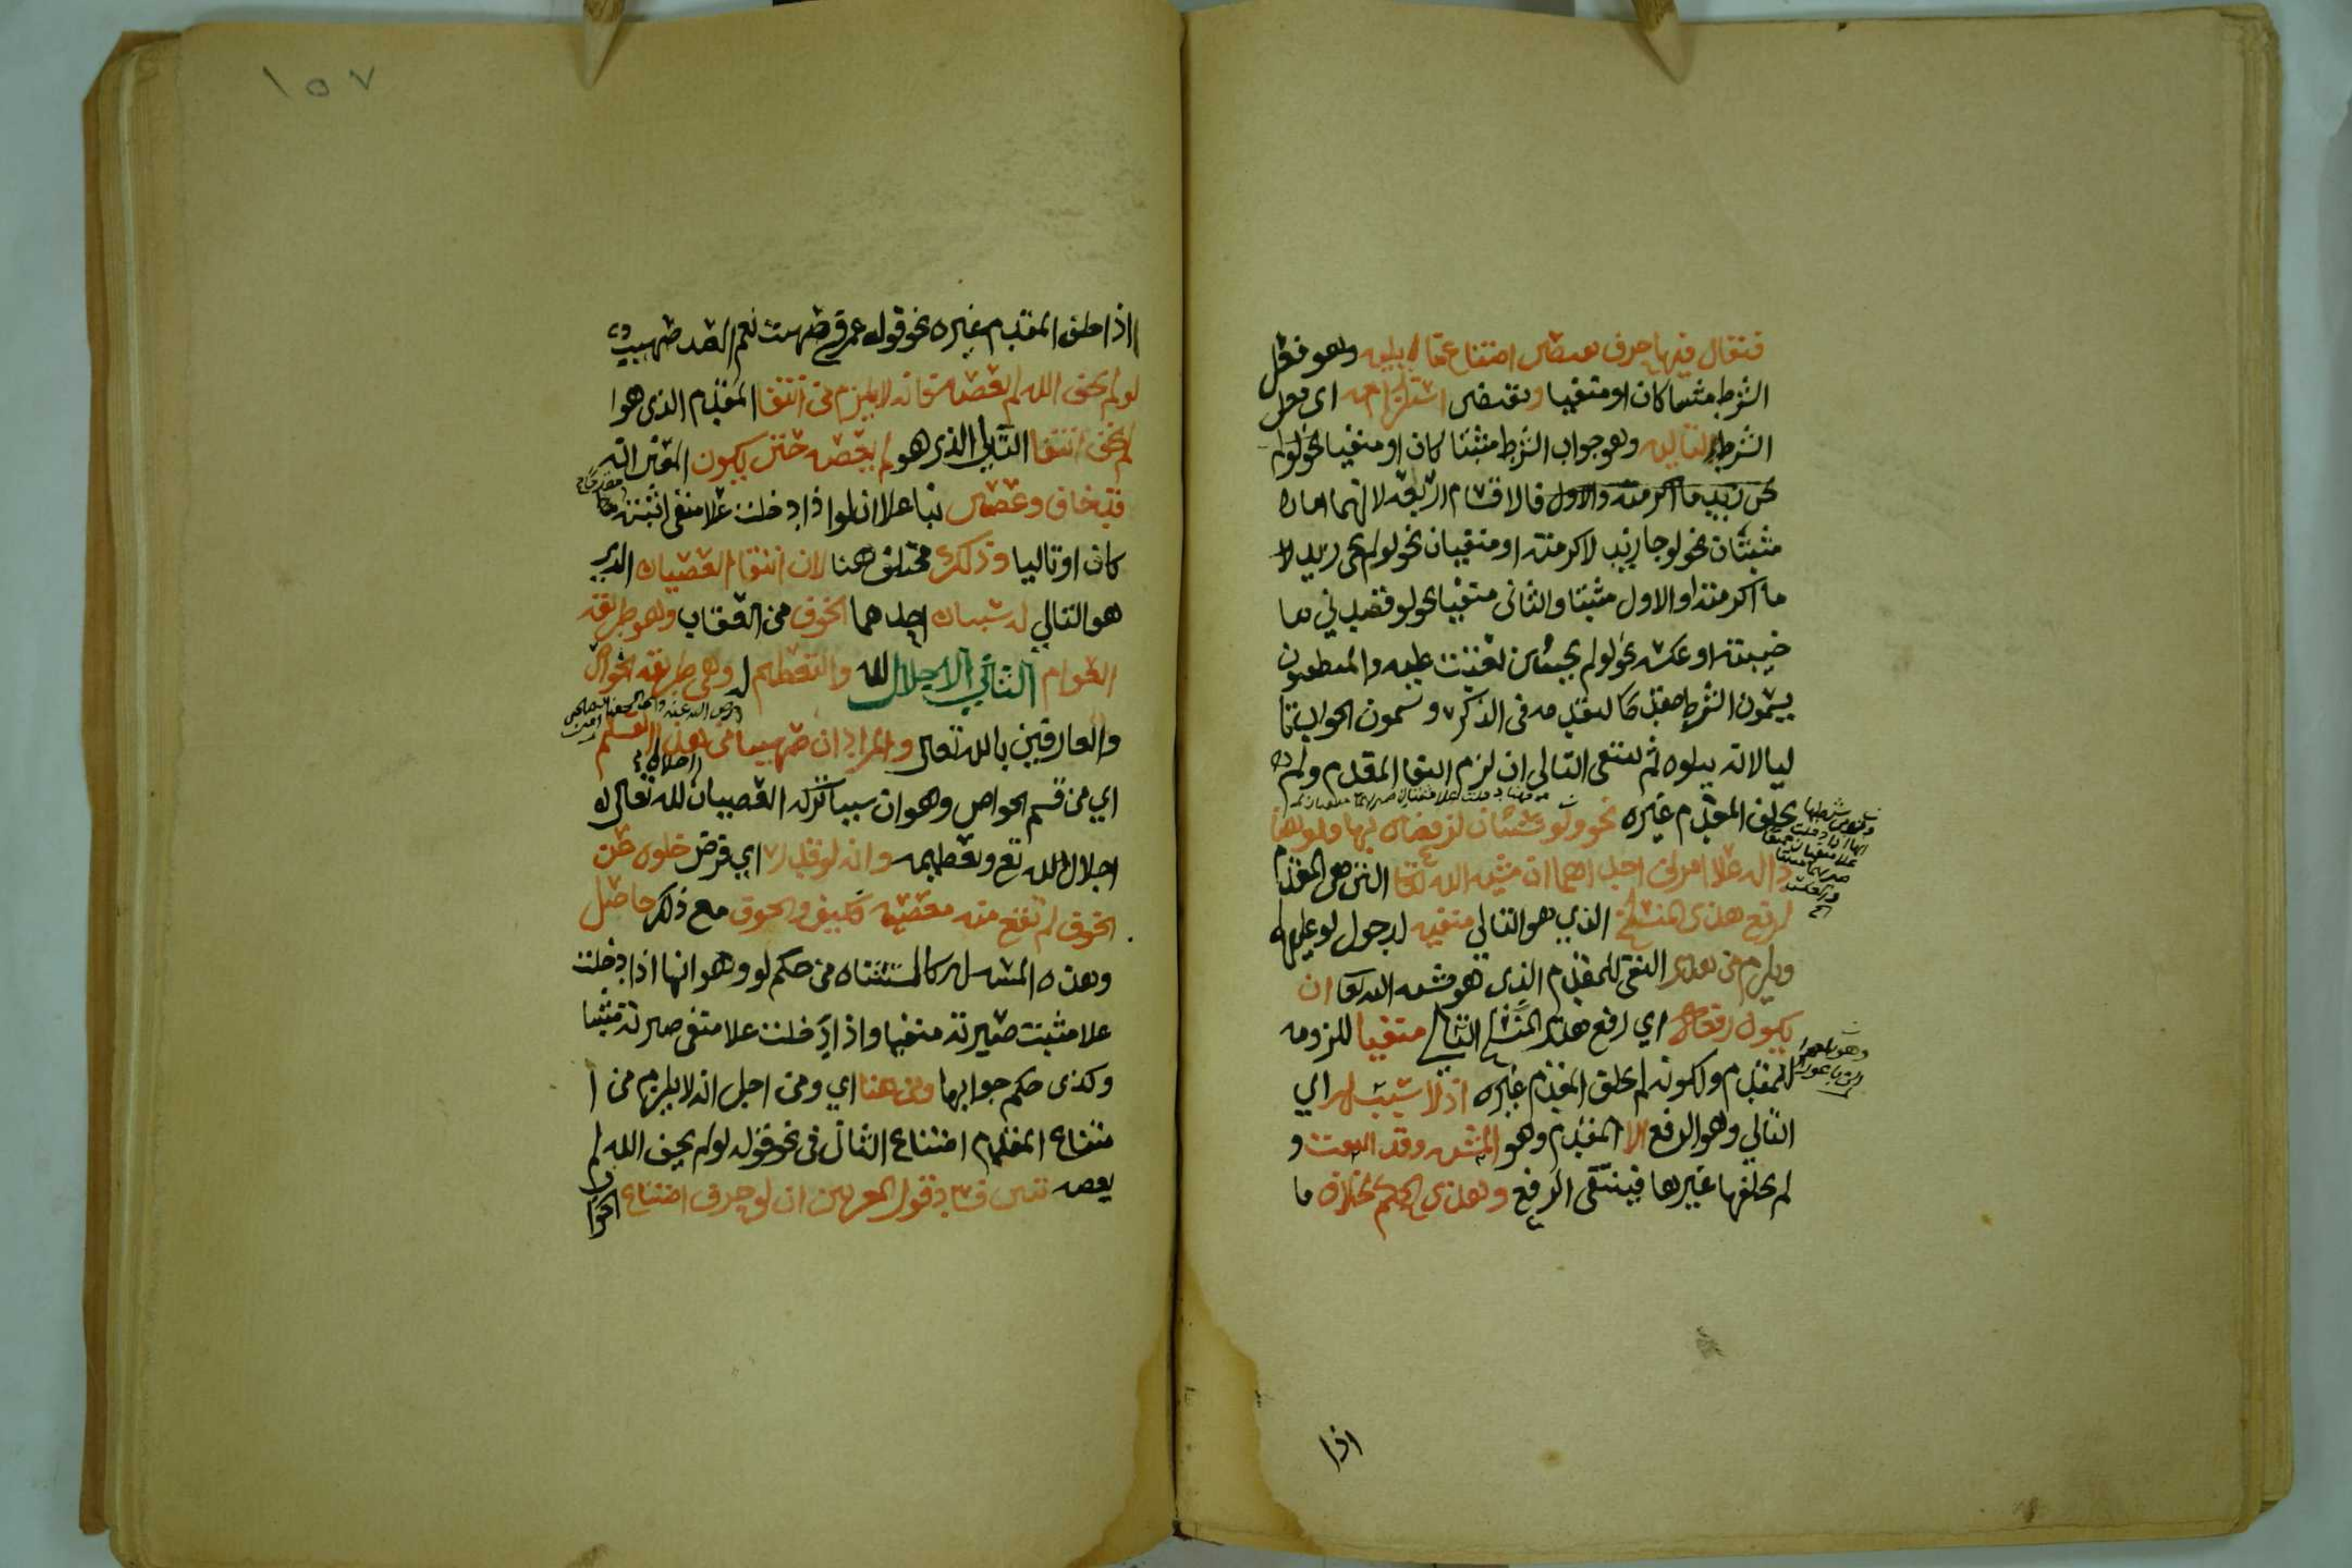 فيقال فيها حرف يقتضي امتناع ما يليه وهو فعل
الشرط مثبتا كان او منفيا ويقتضي استلزامه اي فعل
الشرط لتاليه وهو جواب الشرط مثبتا كان او منفيا نحو لو لم
مثبتان نحو لو جا زيد لاكرمته او منفيان نحو لو لم يجى زيد
ما اكرمته او الاول مثبتا والثاني منفيا نحو لو قصدني ما
خيبته او عكسه نحو لو لم يجئني عتبت عليه والمنطقيون
يسمون الشرط مقدما لتقدمه في الذكر ويسمون الجواب تا
ليا لانه يتلوه ثم ينتفى التالي ان لزم المقدم ولم
يخلف المقدم غيره نحو ولو شئنا لرفعناه بها فلو هنا
دالة علا امرين احدهما ان مشية الله تعا التي هى المقدم
لرفع هذى المنسلخ الذي هو التالي منفية لدخول لو عليها
ويلزم من هذا النفى للمقدم الذى هو مشية الله تعا ان
يكون رفعه اي رفع هذا المنسلخ التالي منفيا للزومه
للمقدم ولكونه لم يخلف المقدم غيره اذ لا سبب له اي
التالي وهو الرفع الا المقدم وهو المشية وقد انتفت و
لم يخلفها غيرها فينتفى الرفع وهذى الحكم بخلاف ما
اذا
١٥٧
اذا خلف المقدم غيره نحو قول عمر في صهيب نعم العبد صهيب
لو لم يخف الله لم يعصه فانه لا يلزم من انتفا المقدم الذى هوا
لم يخف انتفا التالي الذي هو لم يعصه حتى يكون المعنى انه
قد خاف وعصى بنا علا ان لو اذا دخلت علا منفى اثبتته
كان او تاليا وذلك مختلف هنا لان انتفا العصيان الذي
هو التالي له سببان احدهما الخوف من العقاب وهو طريقة
العوام الثاني الاجلال لله والتعظيم له وهي طريقة الخواص
والعارفين بالله تعالى والمراد ان صهيبا من هذا القسم
اي من قسم الخواص وهو ان سبب تركه العصيان لله تعالى
اجلال الله تع وتعظيمه وانه لو قدر اي فرض خلوه عن
الخوف لم تقع منه معصية فكيف والخوف مع ذلك حاصل
وهذه المسله كالمستثناه من حكم لو وهو انها اذا دخلت
علا مثبت صيرته منفيا واذا دخلت علا منفى صيرته مثبتا
وكذى حكم جوابها ومن هنا اي ومن اجل انه لا يلزم من ا
متناع المقدم امتناع الثاني في نحو قوله لو لم يخف الله لم
يعصه تبين فساد قول المعربين ان لو حرف امتناع